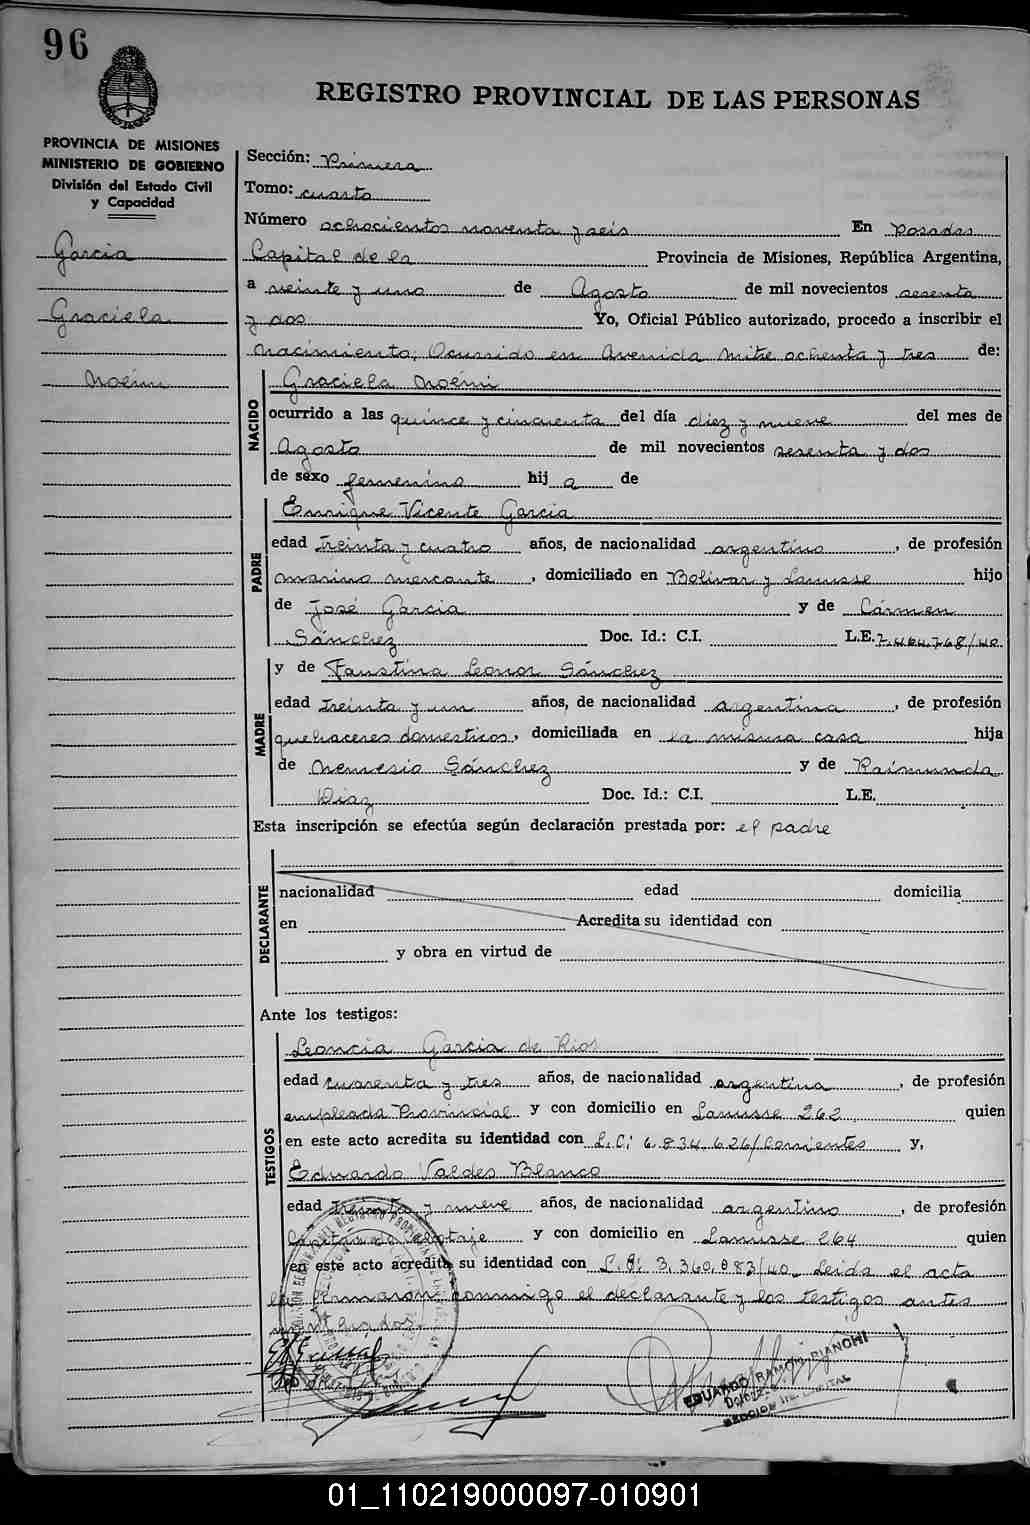 96
REGISTRO PROVINCIAL DE LAS PERSONAS
PROVINCIA DE MISIONES
MINISTERIO DE GOBIERNO
División del Estado Civil
y Capacidad
Garcia
Graciela
Noémi
Sección: Primera
Tomo: cuarto
Número ochocientos noventa y seis En Posadas
Capital de la Provincia de Misiones, República Argentina,
a veinte y uno de Agosto de mil novecientos sesenta
y dos Yo, Oficial Público autorizado, procedo a inscribir el
nacimiento; Ocurrido en Avenida Mitre ochenta y tres de:
NACIDO
Graciela Noémi
ocurrido a las quince y cincuenta del día diez y nueve del mes de
Agosto de mil novecientos sesenta y dos
de sexo femenino hij a de
PADRE
Enrique Vicente Garcia
edad treinta y cuatro años, de nacionalidad argentino, de profesión
marino mercante, domiciliado en Bolivar y Lanusse hijo
de José Garcia y de Cármen
Sánchez Doc. Id.: C.I. L.E. 7.464.768/40
MADRE
y de Faustina Leonor Sánchez
edad treinta y un años, de nacionalidad argentina, de profesión
quehaceres domesticos, domiciliada en la misma casa hija
de Nemesio Sánchez y de Raimunda
Diaz Doc. Id.: C.I. L.E.
Esta inscripción se efectúa según declaración prestada por: el padre
DECLARANTE
nacionalidad edad domicilia
en Acredita su identidad con
y obra en virtud de
Ante los testigos:
TESTIGOS
Leoncia Garcia de Rios
edad cuarenta y tres años, de nacionalidad argentina, de profesión
empleada Provincial y con domicilio en Lanusse 262 quien
en este acto acredita su identidad con L.C: 6.834.626/Corrientes y,
Eduardo Valdes Blanco
edad treinta y nueve años, de nacionalidad argentino, de profesión
Capitan de cabotaje y con domicilio en Lanusse 264 quien
en este acto acredita su identidad con L.E: 3.360.883/40. Leida el acta
la firmaron conmigo el declarante y los testigos antes
EDUARDO RAMON BIANCHI
01_110219000097-010901